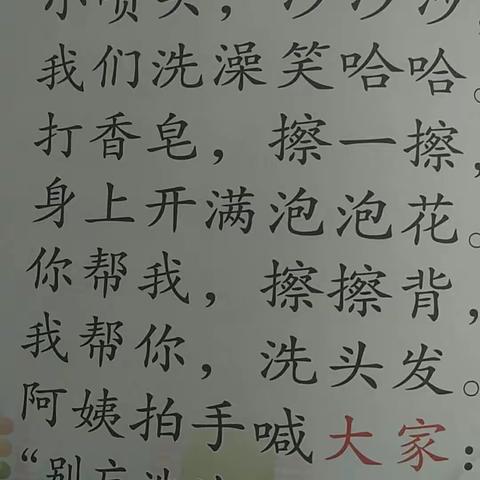 小喷头，沙沙沙，
我们洗澡笑哈哈。
打香皂，擦一擦，
身上开满泡泡花。
你帮我，擦擦背，
我帮你，洗头发。
阿姨拍手喊大家：
“别忘洗